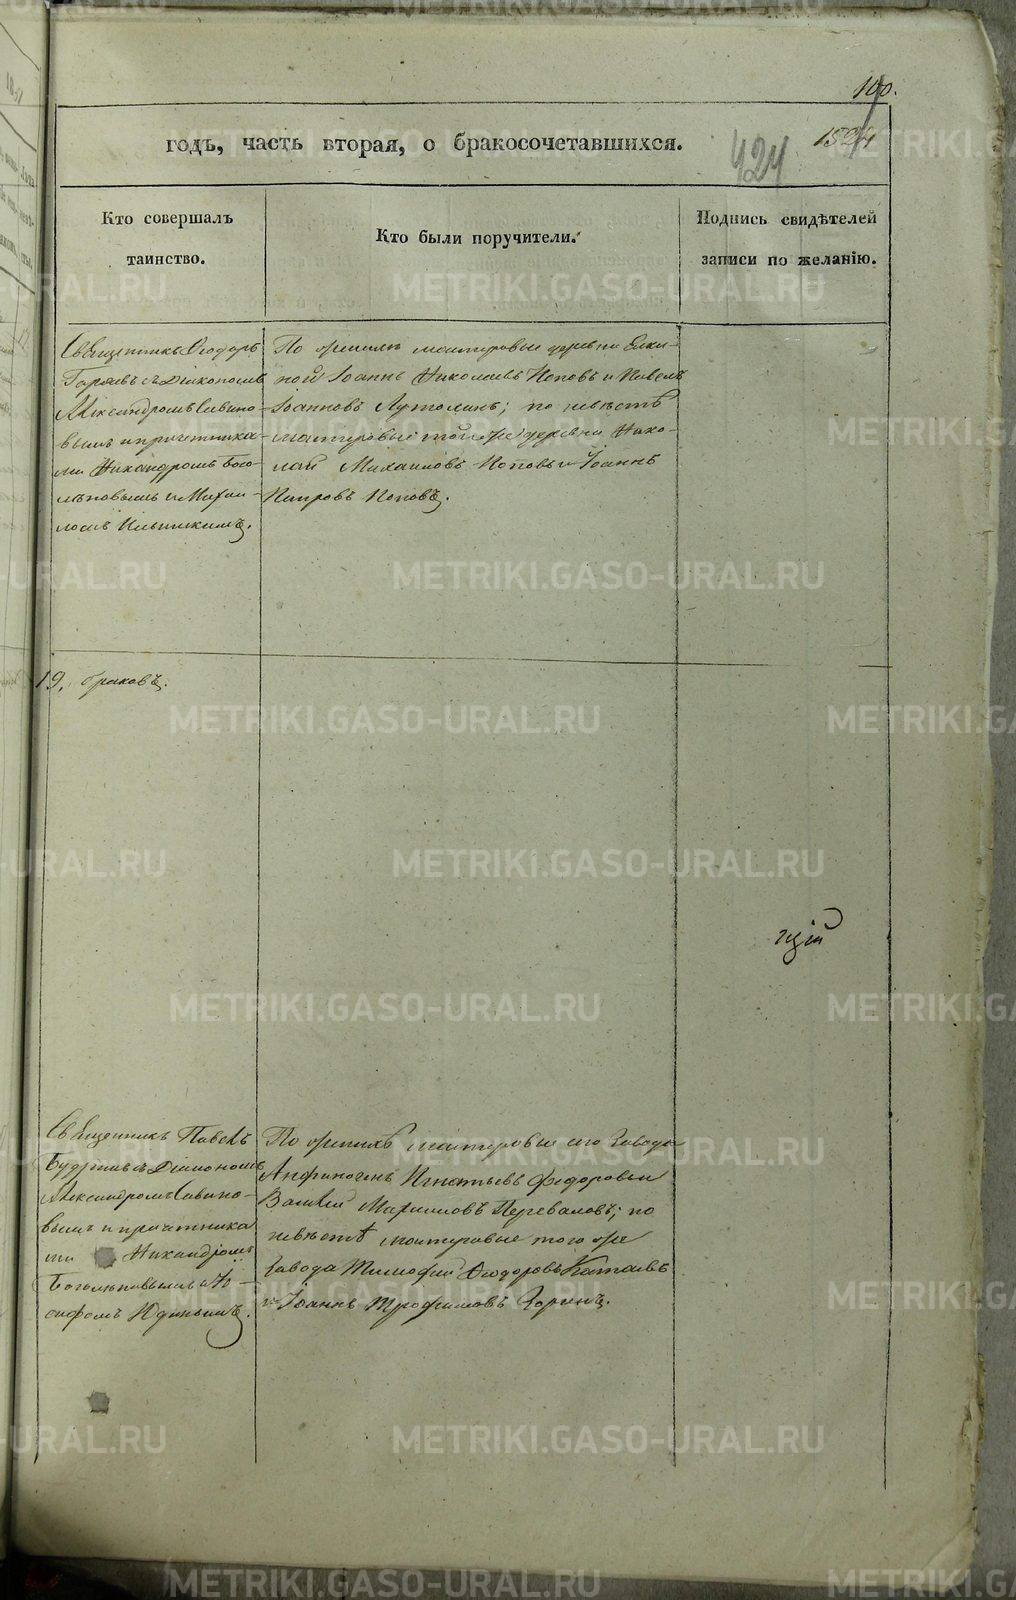 100.
годъ, часть вторая, о бракосочетавшихся.
424
1524
Кто совершалъ
таинство.
Кто были поручители.
Подпись свидѣтелей
записи по желанію.
Священникъ Ѳеодоръ
съ Діакономъ
Александромъ Савино-
вымъ и причетника-
ми Никандромъ Бого-
лѣповымъ и Михаи-
ломъ
По женихѣ мастеровые деревни Елки-
ной Іоаннъ Николаевъ Поповъ и Павелъ
Іоанновъ; по невѣстѣ
мастеровые той же деревни Нико-
лай Михаиловъ Поповъ и Іоаннъ
Петровъ Поповъ.
19, браковъ.
щій
Священникъ Павелъ
съ Діакономъ
Александромъ Савино-
вымъ и причетника
ми Никандромъ
Боголѣповымъ и Іо-
сифомъ Юдинымъ.
По женихѣ мастеровые сего завода
Игнатьевъ Федоровъ и
Василий Переваловъ; по
невѣстѣ мастеровые того же
завода Тимофей Ѳеодоровъ Катаевъ
и Іоаннъ Трофимовъ
METRIKI.GASO-URAL.RU